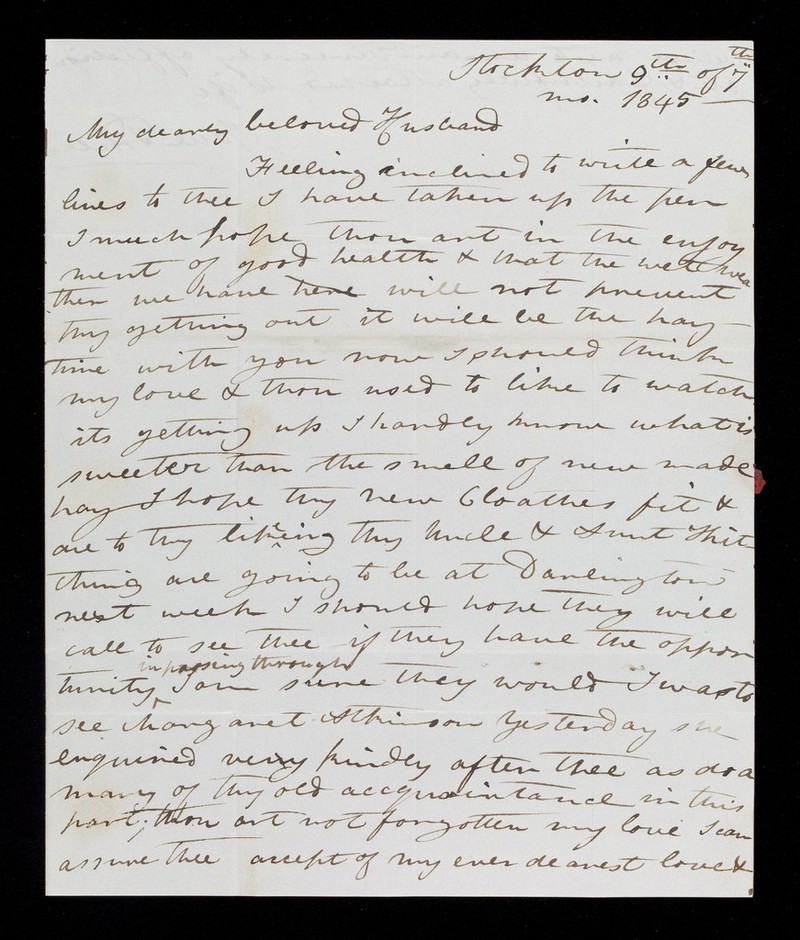 Stockton 9th of 7th
mo. 1845
My dearly beloved Husband
Feeling inclined to write a few
lines to thee I have taken up the pen
I much hope thou art in the enjoy
ment of good health & that the wet wea
ther we have here will not prevent
thy getting out it will be the hay
time with you now I should think
my love & thou used to like to watch
its getting up I hardly know what is
sweeter than the smell of new made
hay I hope thy new Cloathes fit &
are to thy likeing thy Uncle & Aunt Whit
thing are going to be at Darlington
next week I should hope they will
call to see thee if they have the oppor
in passing through
tunity I am sure they would I was to
see Margaret Atkinson Yesterday she
enquired very kindly after thee as do a
many of thy old accquaintance in this
part; thou art not forgotten my love I can
assure thee accept of my ever dearest love &